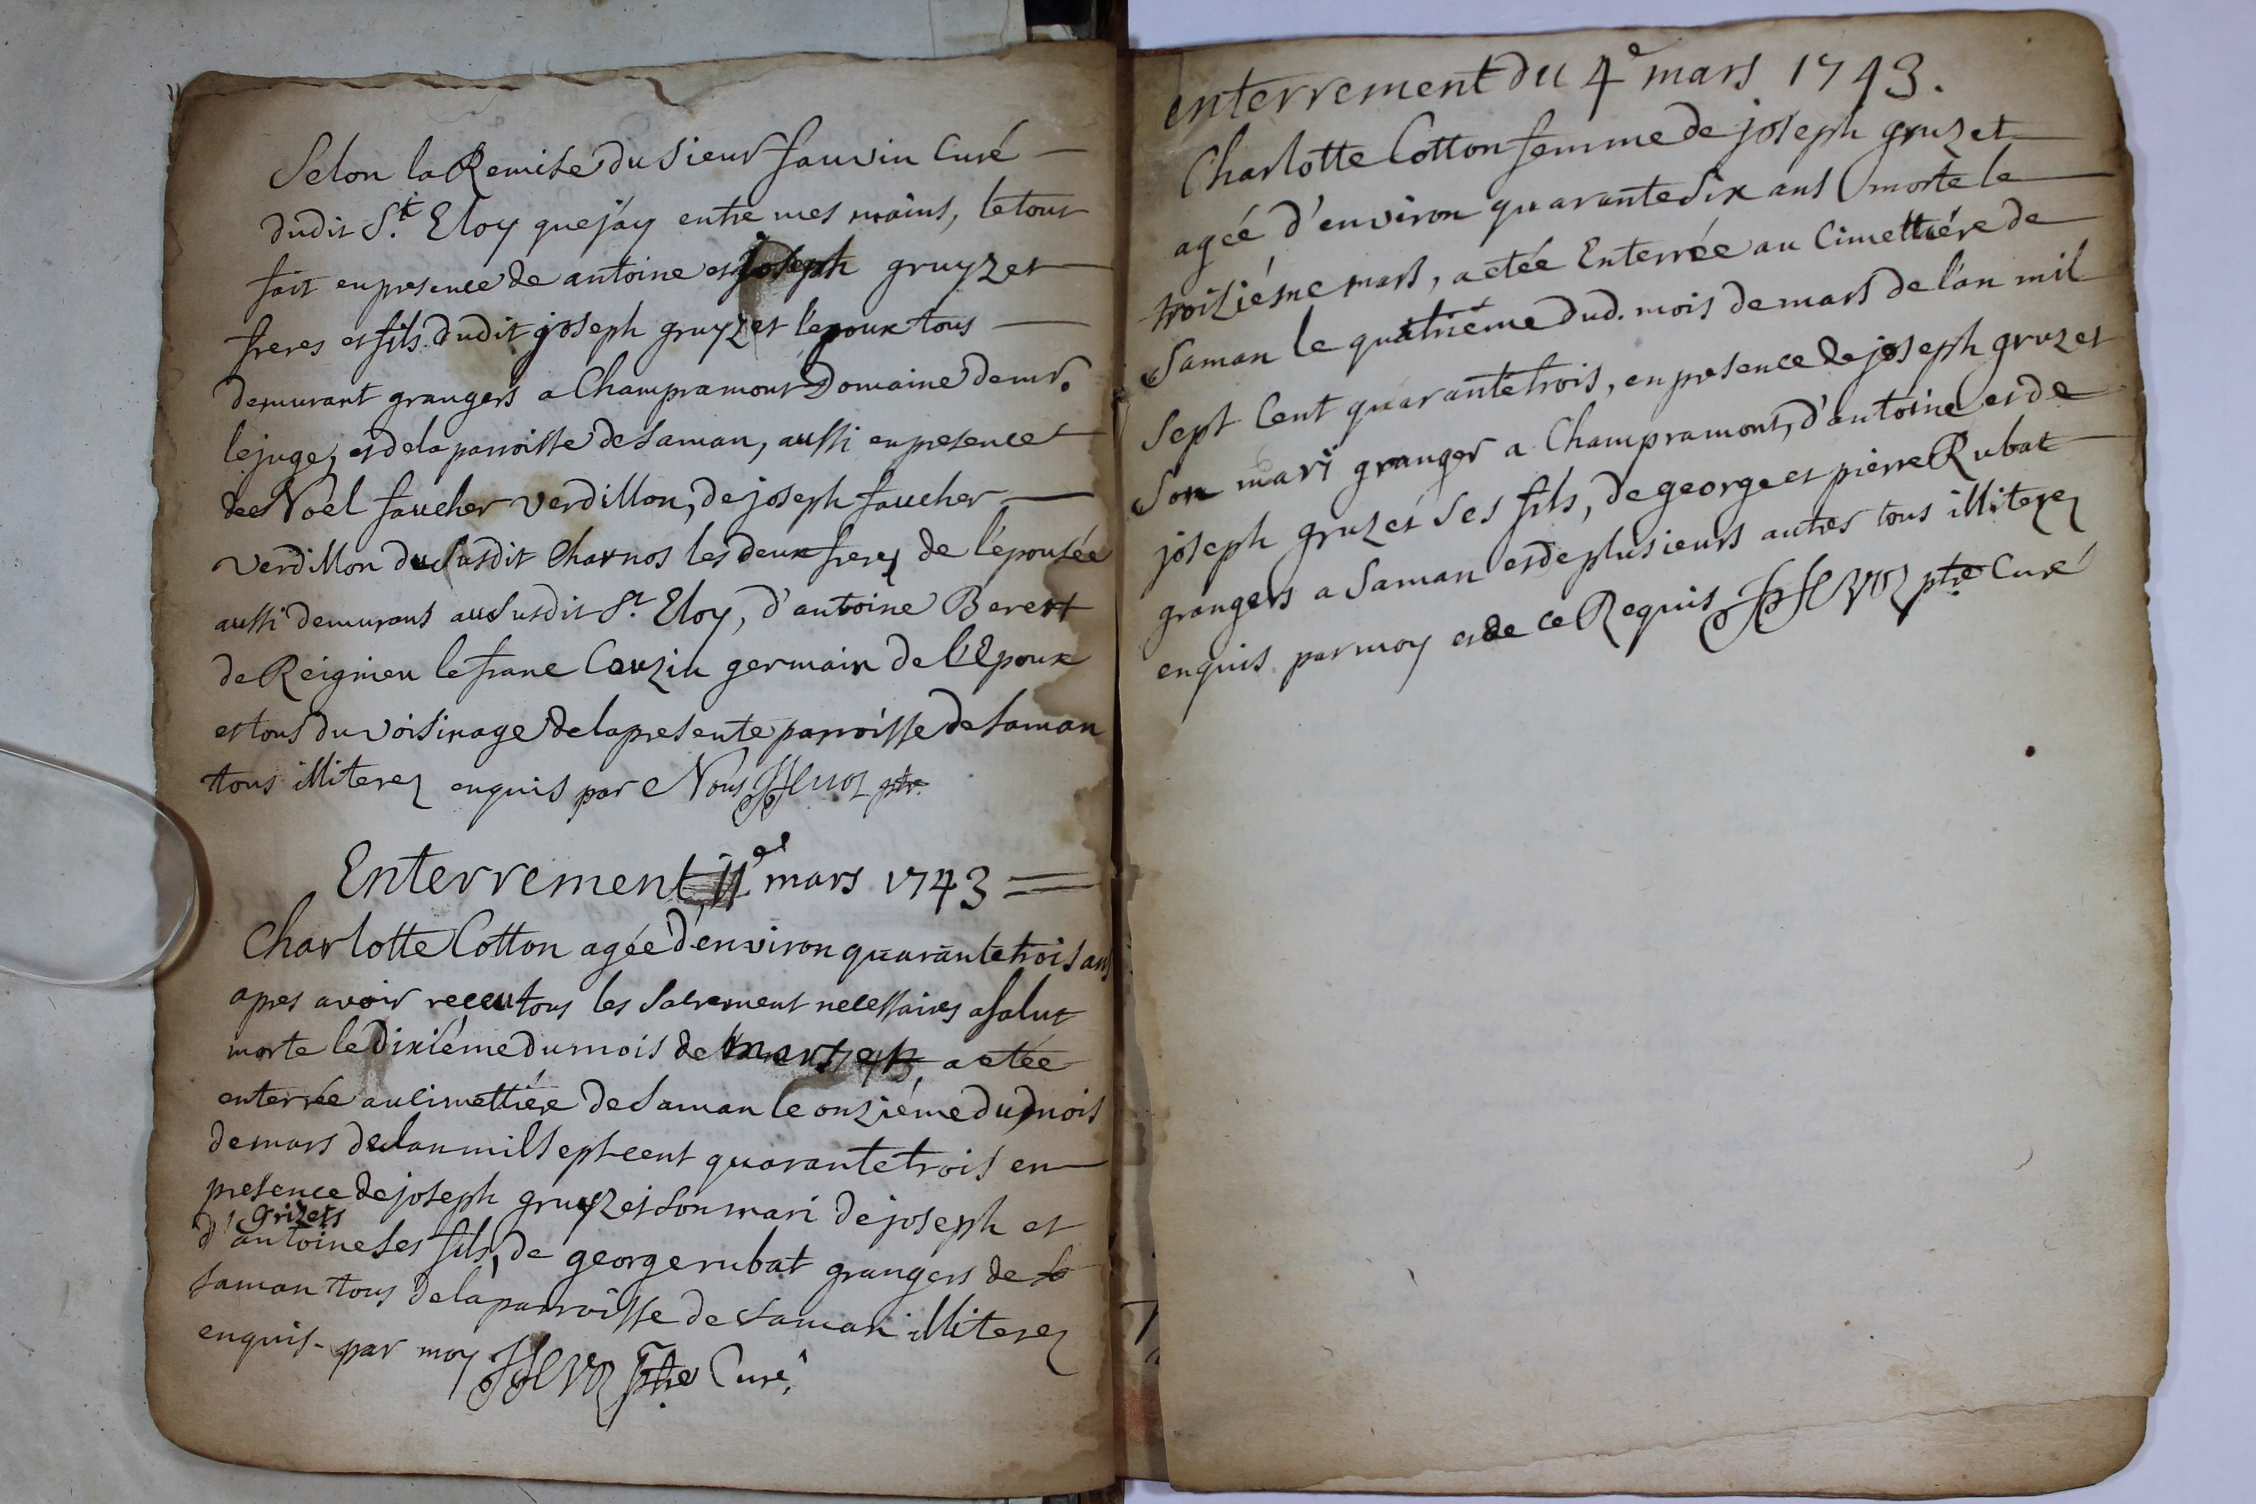 Selon la Remise du sieur fauvin Curé
dudit S.t Eloy que j'ay entre mes mains, le tout
fait en presence de antoine et joseph gruyzet
freres et fils dudit joseph gruyzet l'epoux tous
demurant grangers a Champramont Domaine de mr.
le juge, et de la parroisse de Saman, aussi en presence
de Noël faucher verdillon, de joseph faucher
verdillon du susdit Charnos les deux freres de l'épousée
aussi demurans au susdit S.t Eloy, d'antoine Berert
de Reignieu le franc Couzin germain de l'Epoux
et tous du voisinage de la presente parroisse de Saman
tous illiterez enquis par Nous ptre.
Enterrement 11e mars 1743
Charlotte Cotton agée d'environ quarante trois ans
apres avoir receu tous les Sacrement necessaires a salut
morte le dixiéme du mois de mars a etée
enterrée au cimettiére de Saman le onziéme dud mois
de mars de lan mil sept cent quarante trois en
presence de joseph gruyzet son mari de joseph et
grizets
d'antoine ses fils, de george rubat grangers de
Saman tous de la parroisse de Saman illiterez
enquis par moy ptre Curé
enterrement du 4e mars 1743.
Charlotte Cotton femme de joseph gruzet
agée d'environ quarante six ans morte le
troiziéme mars, a etée Enterrée au Cimettiére de
Saman le quatriéme dud. mois de mars de l'an mil
sept Cent quarante trois, en presence de joseph gruzet
son mari granger a Champramont, d'antoine et de
joseph gruzet ses fils, de george et pierre Rubat
grangers a Saman et de plusieurs autres tous illiterez
enquis par moy et de ce Requis ptre Curé